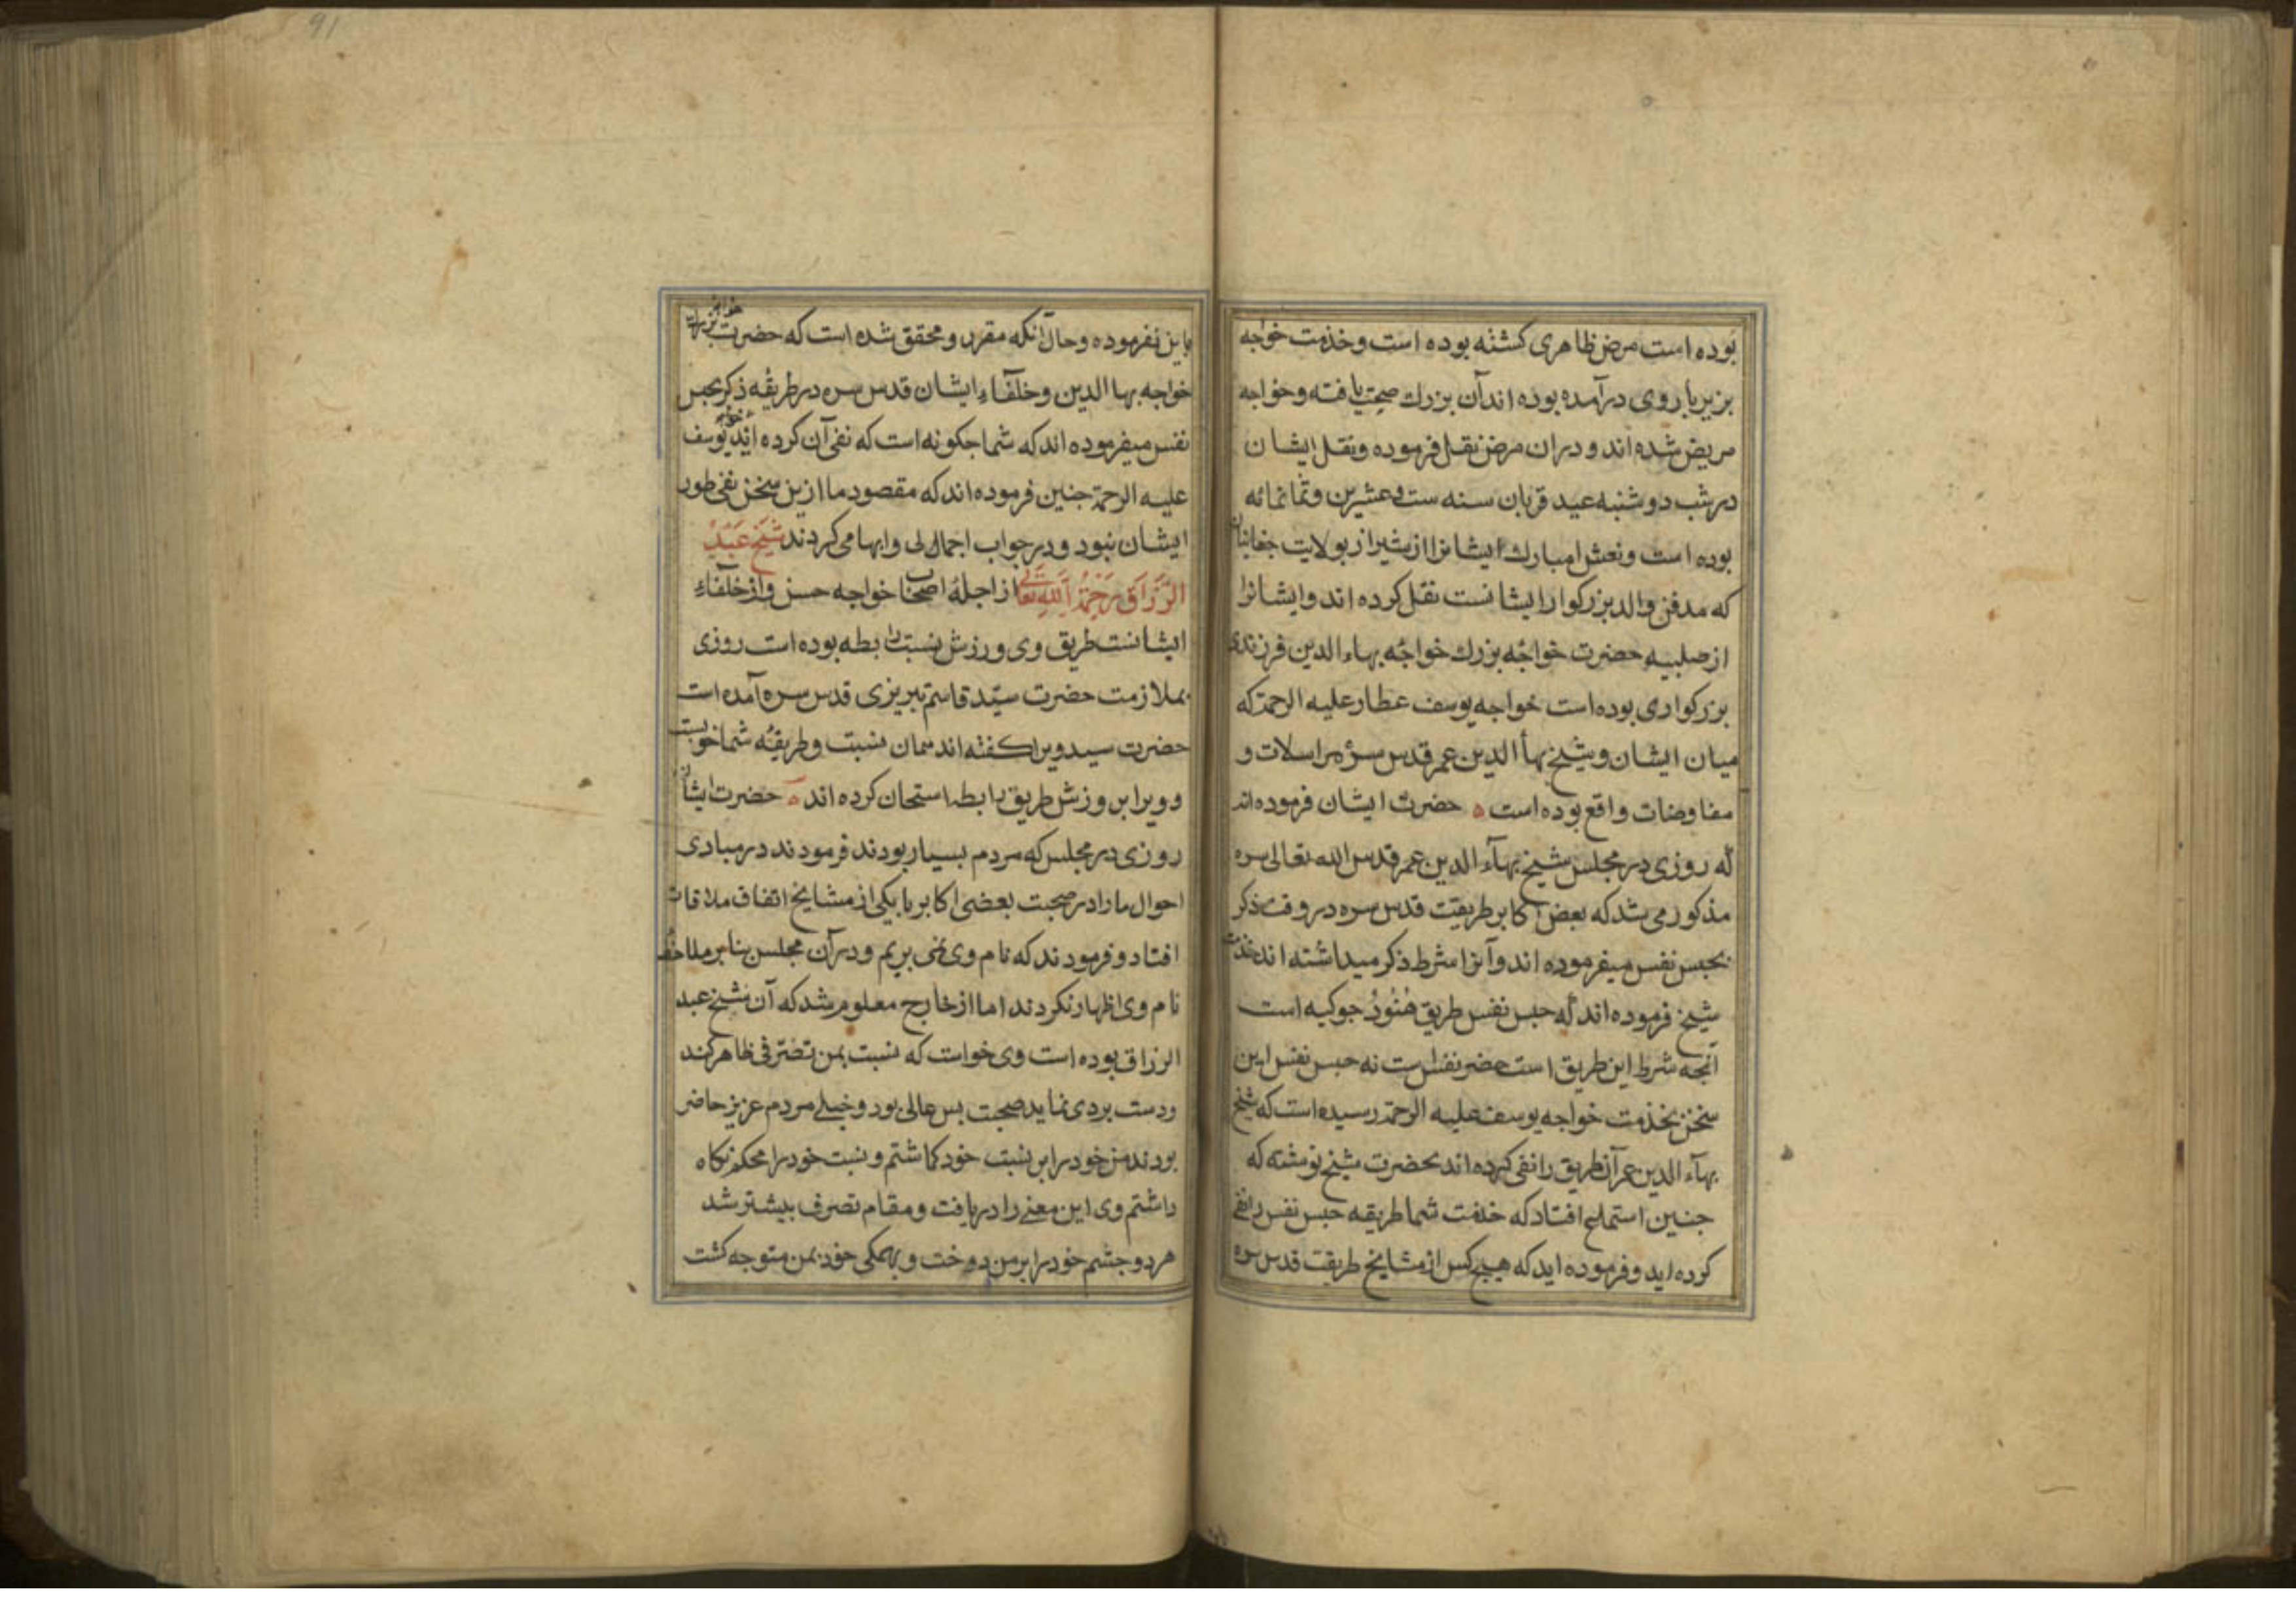 بوده است مرض ظاهری کشته بوده است وخذمت خواجه
بزیر بار وی درآمده بوده اند آن بزرك صحت یافته وخواجه
مریض شده اند و دران مرض نقل فرموده ونقل ایشان
درشب دوشنبه عید قربان سنه ست وعشرین وثمانمائه
بوده است ونعش مبارك ایشانرا از شیراز بولایت جغانیان
که مدفن والد بزرکوار ایشانست نقل کرده اند وایشانرا
از صلبیه حضرت خواجه بزرك خواجه بهاء الدین فرزندی
بزرکواری بوده است خواجه یوسف عطار علیه الرحمة که
میان ایشان وشیخ بهأ الدین عمر قدس سره مراسلات و
مفاوضات واقع بوده است ه حضرت ایشان فرموده اند
که روزی در مجلس شیخ بهآء الدین عمر قدس الله تعالی سره
مذکور می شد که بعض اکابر طریقت قدس سره در وقت ذکر
بحبس نفس میفرموده اند وآنرا شرط ذکر میداشته اند خذمت
شیخ فرموده اند که حبس نفس طریق هنود جوکیه است
آنجه شرط این طریق است حضر نفس است نه حبس نفس این
سخن بخذمت خواجه یوسف علیه الرحمة رسیده است که شیخ
بهآء الدین عمر آن طریق را نفی کرده اند بحضرت شیخ نوشته که
جنین استماع افتاد که خذمت شما طریقه حبس نفس را نفی
کرده اید وفرموده اید که هیچ کس از مشایخ طریقت قدس سره
91
باین نفرموده وحال آنکه مقرر ومحقق شده است که حضرت خواجه بزرك
خواجه بها الدین وخلفاء ایشان قدس سره در طریقه ذکر بحبس
نفس میفرموده اند که شما جکونه است که نفی آن کرده اند خواجه یوسف
علیه الرحمة جنین فرموده اند که مقصود ما ازین سخن نفی طور
ایشان نبود ودر جواب اجمالی وابهامی کردند شیخ عبد
الرزاق رحمة الله تعالی از اجلۀ اصحاب خواجه حسن واز خلفاء
ایشانست طریق وی ورزش نسبت رابطه بوده است روزی
بملازمت حضرت سید قاسم تبریزی قدس سره آمده است
حضرت سید ویرا کفته اند همان نسبت وطریقه شما خوبست
وویرا بر ورزش طریق رابطه استحان کرده اند ه حضرت ایشان
روزی در مجلس که مردم بسیار بودند فرمودند در مبادی
احوال ما را در صحبت بعضی اکابر با یکی از مشایخ اتفاق ملاقات
افتاد وفرمودند که نام وی نمی بریم ودر آن مجلس بنابر ملاحظه
نام وی اظهار نکردند اما از خارج معلوم شد که آن شیخ عبد
الرزاق بوده است وی خواست که نسبت بمن تصرفی ظاهر کند
ودست بردی نماید صحبت بس عالی بود وخیلی مردم عزیز حاضر
بودند من خود را بر نسبت خود کماشتم ونسبت خود را محکم نکاه
داشتم وی این معنی را دریافت ومقام تصرف بیشتر شد
هر دو جشم خود را بر من دوخت وبهمکی خود بمن متوجه کشت